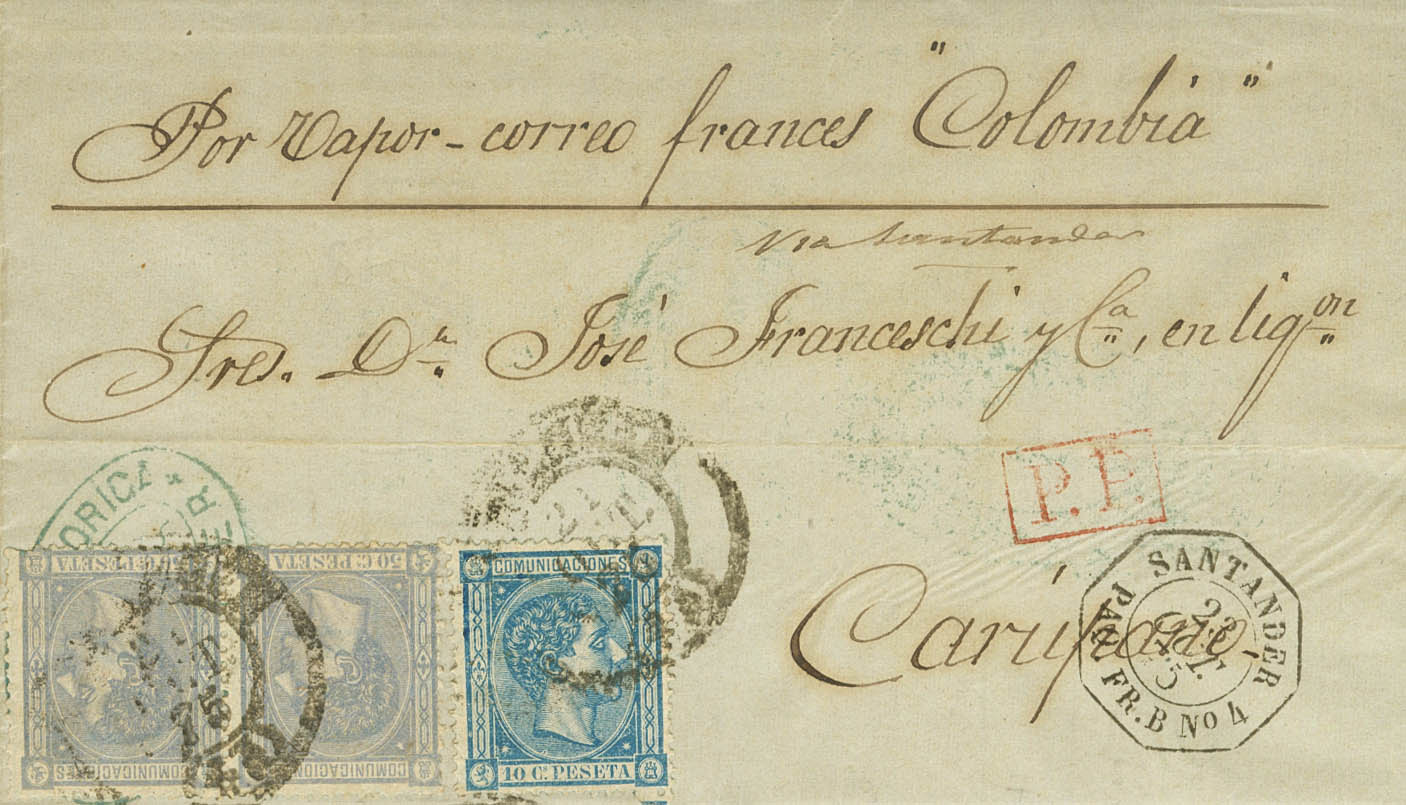 Por Vapor-correo frances "Colombia"
Via Santander
Sres. Dn. José Franceschi y Ca., en liqon.
P.P.
Carúpano,
SANTANDER
23 OCT. 75
PAQ. FR. B No 4
50 C. PESETA
COMUNICACIONES
50 C. PESETA
COMUNICACIONES
COMUNICACIONES
10 C. PESETA